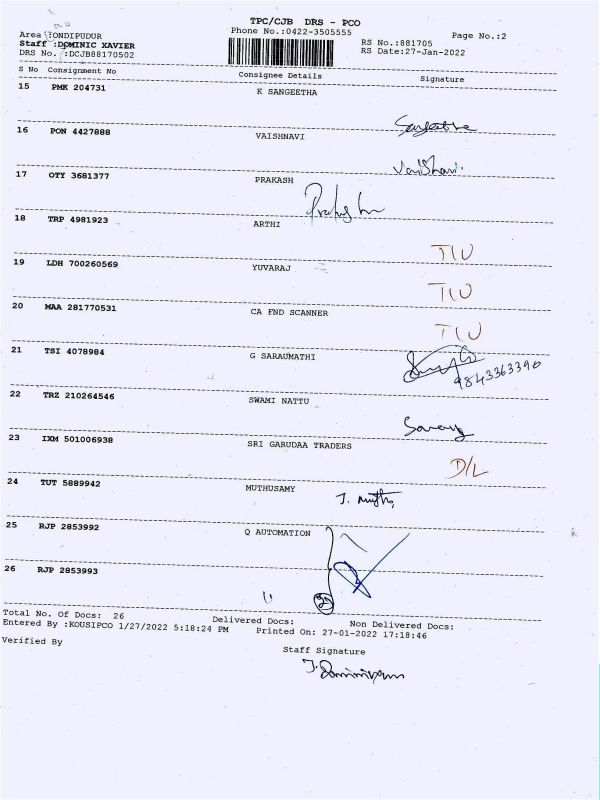 TPC/CJB DRS - PCO
Phone No.:0422-3505555
Page No.:2
Area :ONDIPUDUR
Staff :DOMINIC XAVIER
DRS No. :DCJB88170502
RS No.:881705
RS Date:27-Jan-2022
S No Consignment No Consignee Details Signature
15 PMK 204731 K SANGEETHA
Sangeetha
16 PON 4427888 VAISHNAVI
Vaishnavi.
17 OTY 3681377 PRAKASH
Prakash
18 TRP 4981923 ARTHI
T/U
19 LDH 700260569 YUVARAJ
T/U
20 MAA 281770531 CA FND SCANNER
T/U
21 TSI 4078984 G SARAUMATHI
9843363390
22 TRZ 210264546 SWAMI NATTU
23 IXM 501006938 SRI GARUDAA TRADERS
D/L
24 TUT 5889942 MUTHUSAMY
25 RJP 2853992 Q AUTOMATION
26 RJP 2853993
Total No. Of Docs: 26 Delivered Docs: Non Delivered Docs:
Entered By :KOUSIPCO 1/27/2022 5:18:24 PM Printed On: 27-01-2022 17:18:46
Verified By
Staff Signature